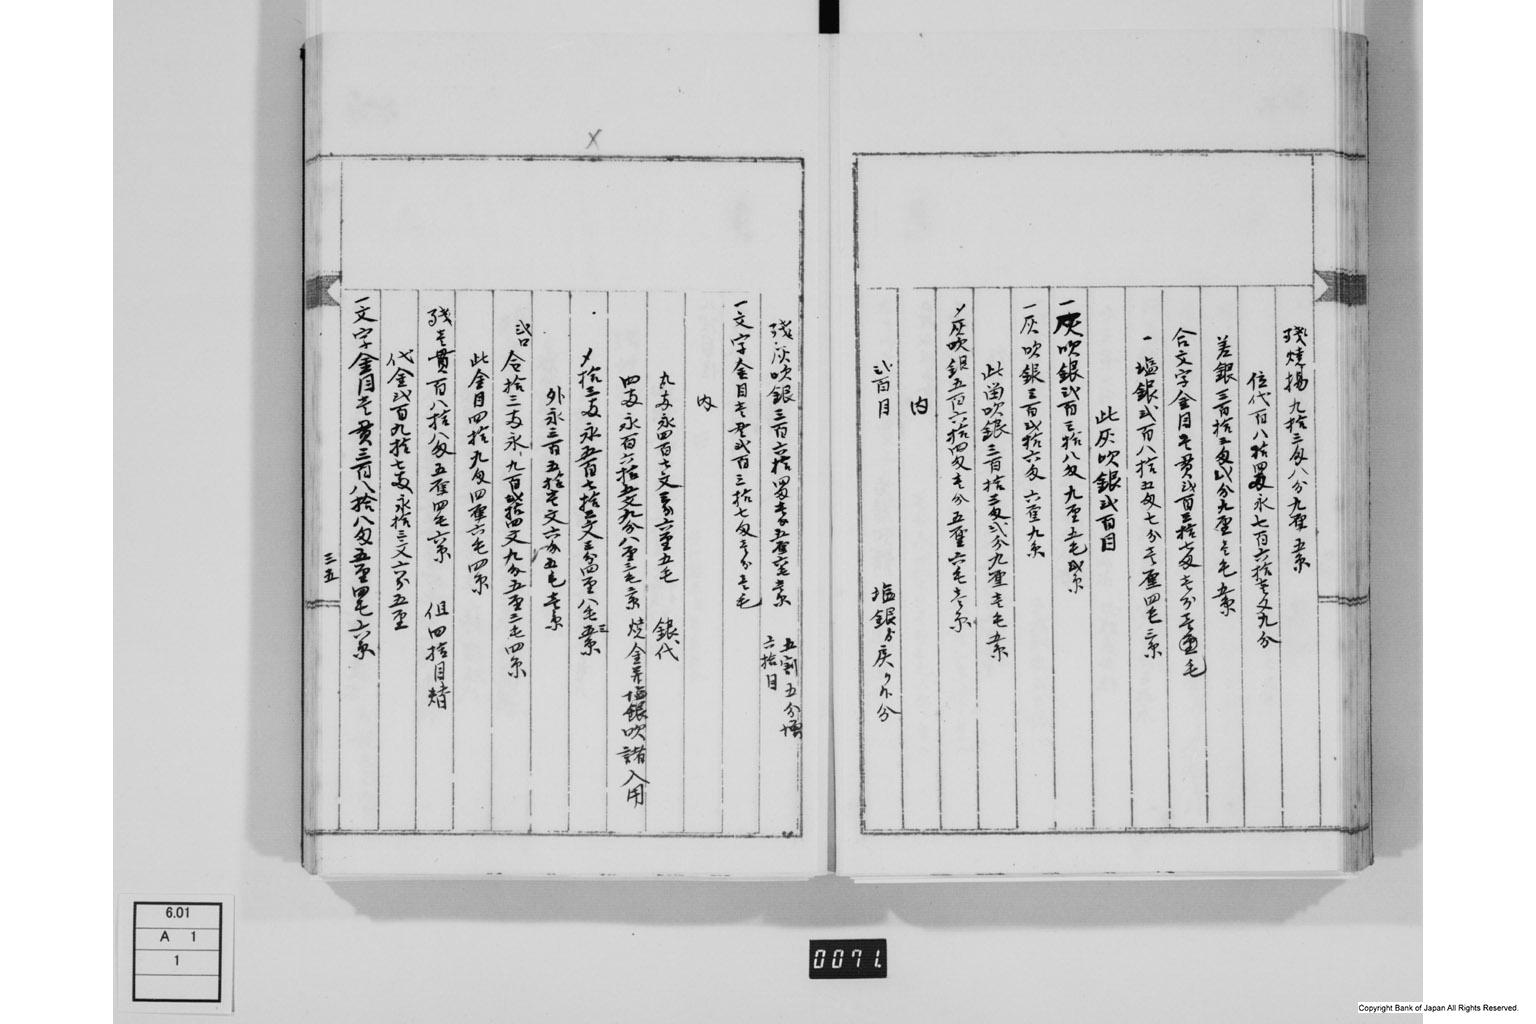 残焼揚九拾三匁八分九厘五糸
位代百八拾四両永七百六拾壱文九分
差銀三百拾三匁弐分九厘壱毛五糸
合文字金目壱貫弐百三拾七匁壱分壱厘毛
一塩銀弐百八拾五匁七分壱厘四毛三糸
此灰吹銀弐百目
一灰吹銀弐百三拾八匁九厘五毛弐糸
一灰吹銀三百弐拾六匁六厘九糸
此歯吹銀三百拾三匁弐分九厘壱毛五糸
〆灰吹銀五百六拾四匁壱分五厘六毛壱糸
内
弐百目 塩銀ゟ戻り分
残灰吹銀三百六拾四匁壱分五厘六毛壱糸 五割五分増
六拾目
一文字金目壱貫弐百三拾七匁壱分壱毛
内
九両永四百七文三分六厘五毛 銀代
四両永百六拾五文九分八厘三毛二糸 焼金并塩銀吹諸入用
〆拾三両永五百七拾三文三分四厘八毛五糸
外永三百五拾壱文六分五毛壱糸
弐口合拾三両永九百弐拾四文九分五厘三毛四糸
此金目四拾九匁四厘六毛四糸
残壱貫百八拾八匁五厘四毛六糸 但四拾目替
代金弐百九拾七両永拾三文六分五厘
一文字金目壱貫三百八拾八匁五厘四毛六糸
三五
6.01
A 1
1
0071.
Copyright Bank of Japan All Rights Reserved.